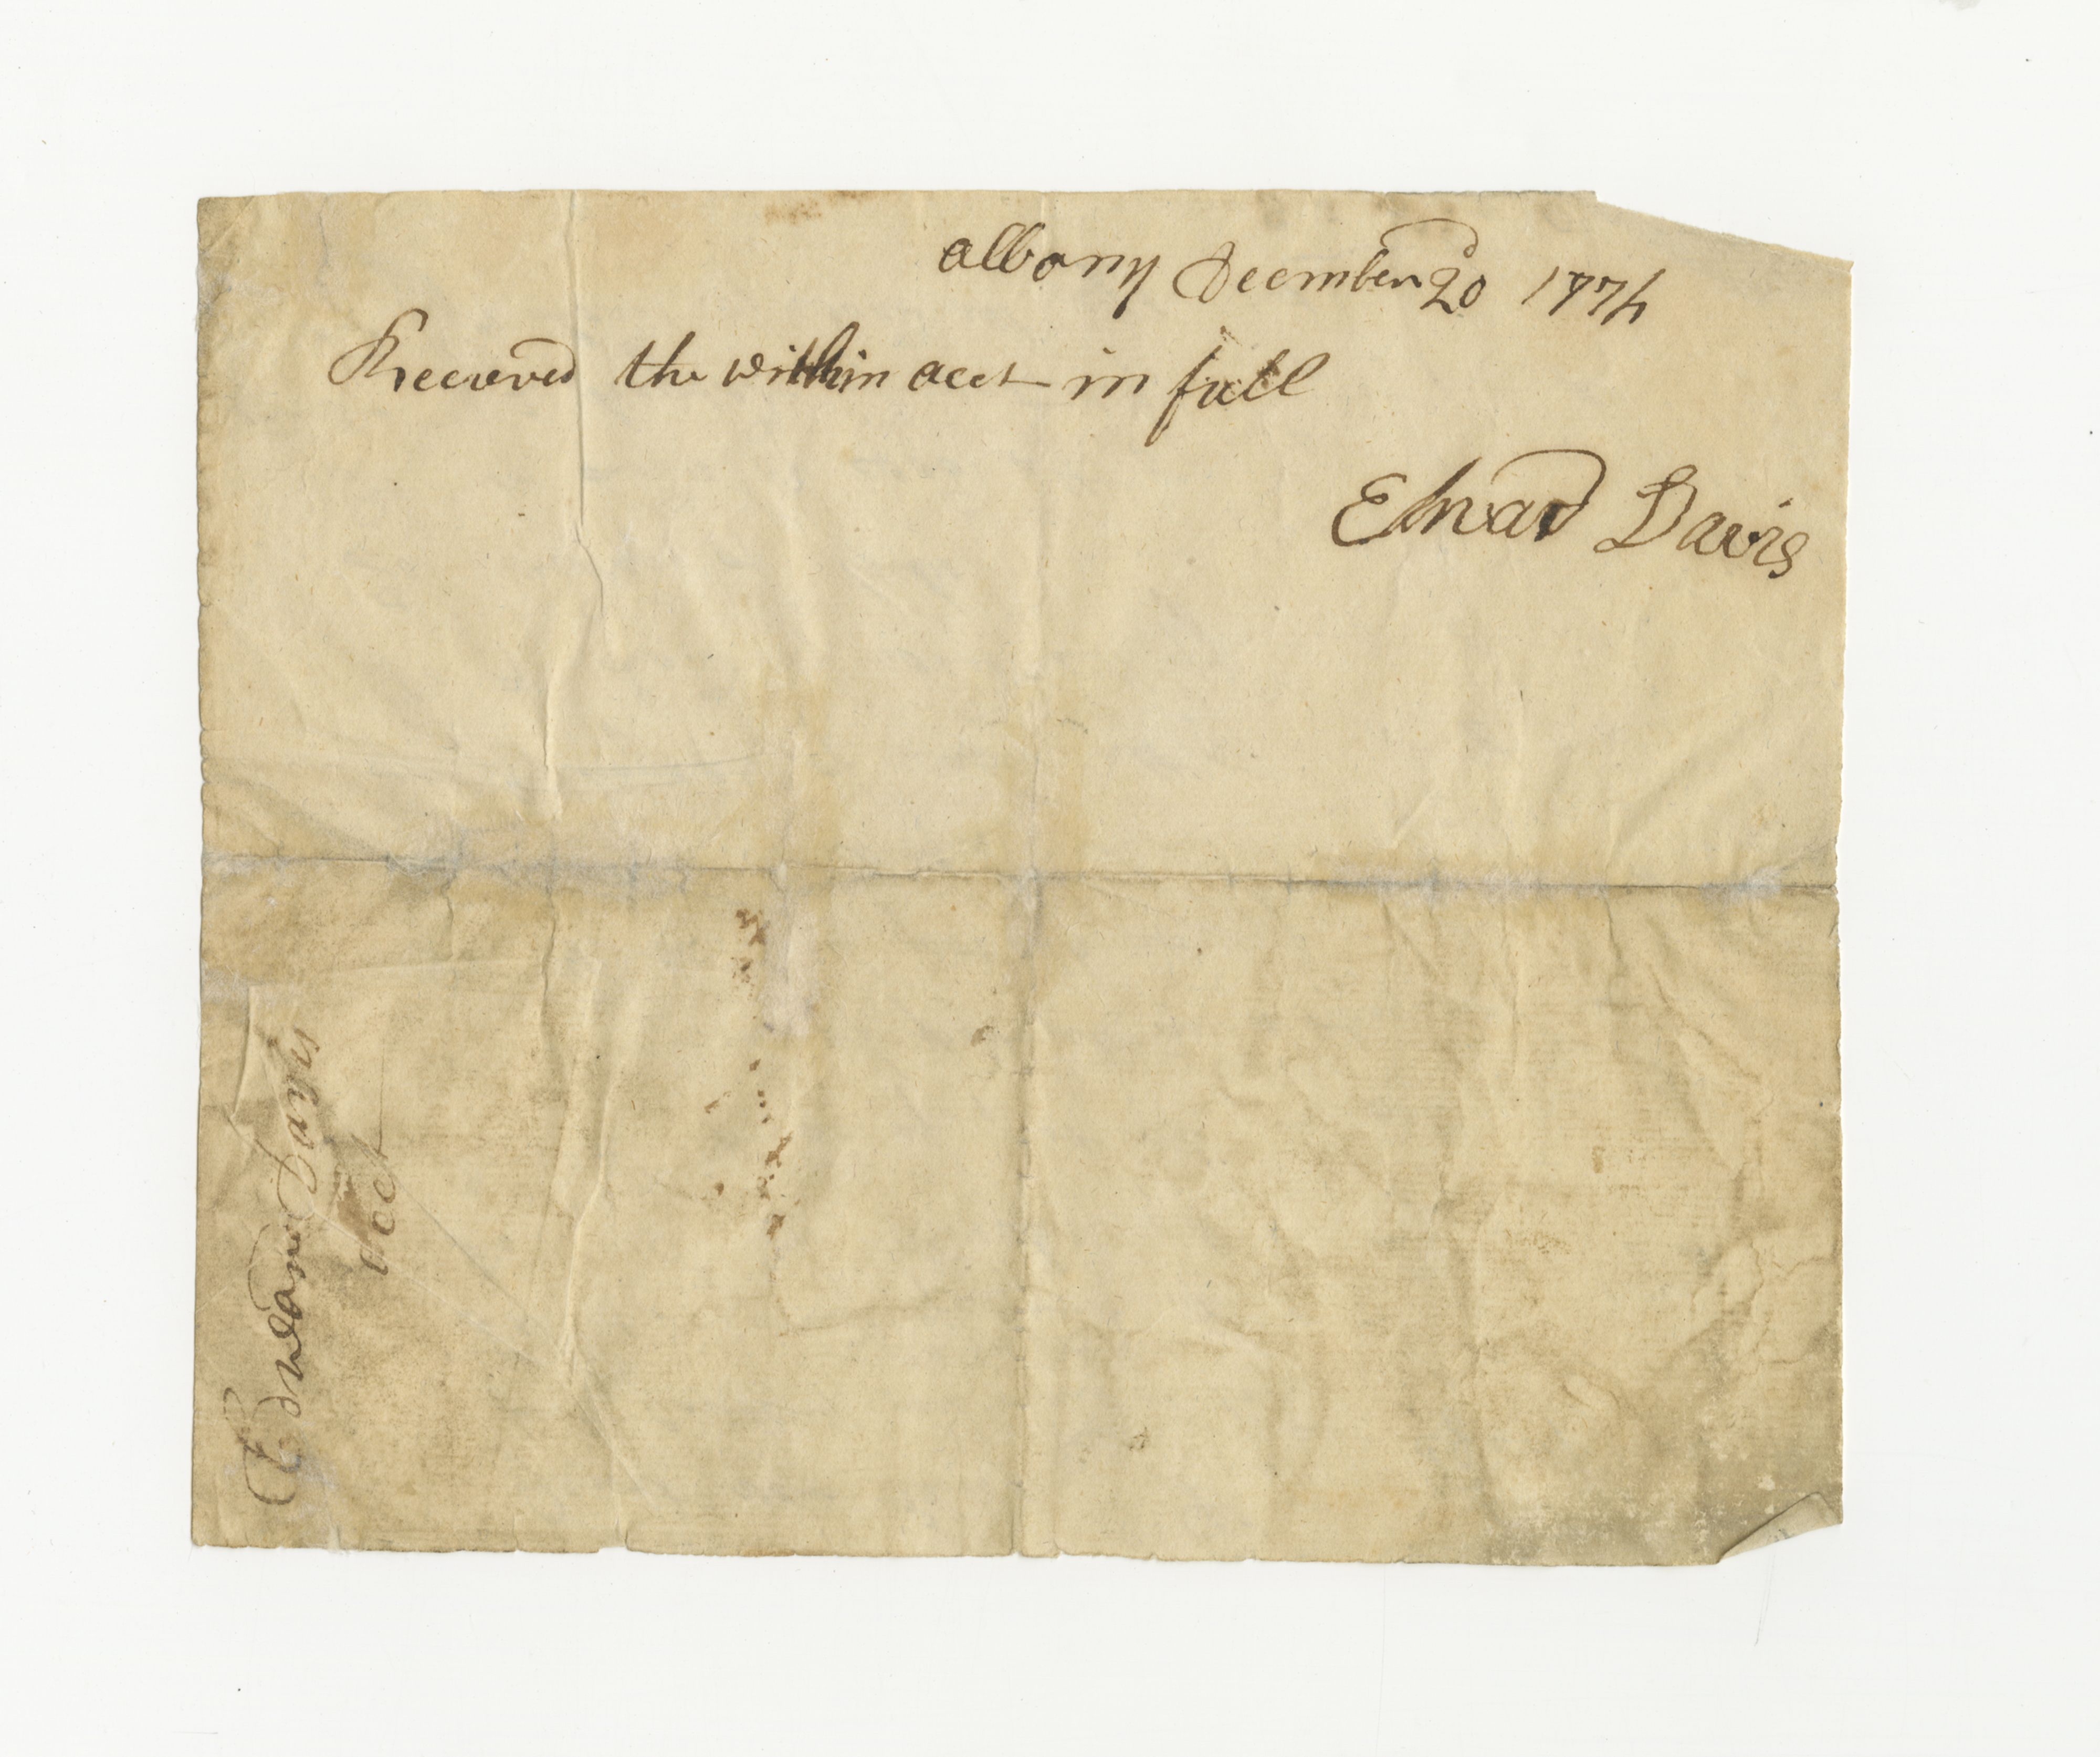 Albany December 20 1774
Received the within acct in full
Edward Davis
Edward Davis
acct